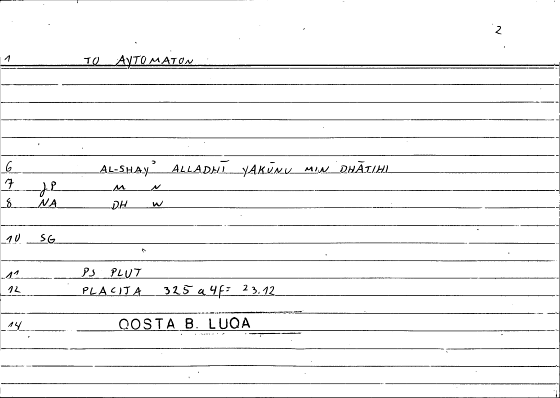 2
1 TO AYTOMATON
6 AL-SHAYʾ ALLADHĪ YAKŪNU MIN DHĀTIHI
7 JP M N
8 NA DH W
10 SG
11 PS PLUT
12 PLACITA 325 a 4f = 23.12
14 QOSTA B. LUQA